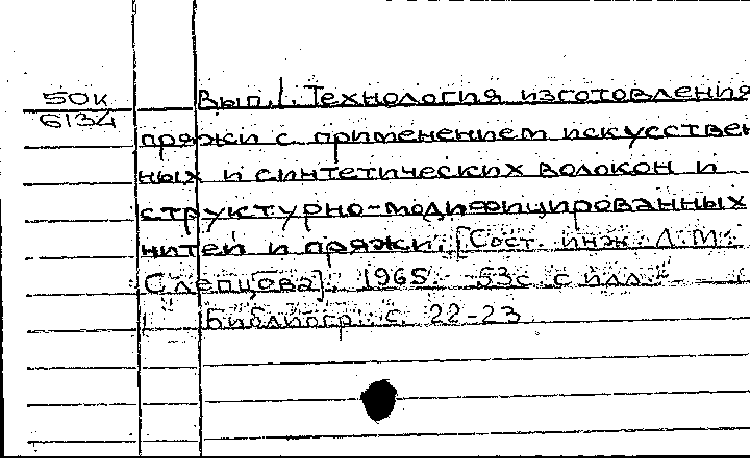 50к
6134
Вып.1. Технология изготовления
пряжи с применением искусствен
ных и синтетических волокон и
структурно-модифицированных
нитей и пряжи. [Сост. инж. Л.М.
Слепцова]. 1965. 53с. с илл.
Библиогр.: с. 22-23